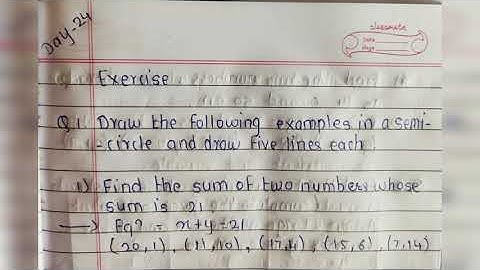 Day-24
classmate
Date
Page
Exercise
Q.1. Draw the following examples in a semi-
-circle and draw five lines each.
1) Find the sum of two numbers whose
sum is 21
→ Eqn = x+y=21
(20,1), (11,10), (17,4), (15,6), (7,14)